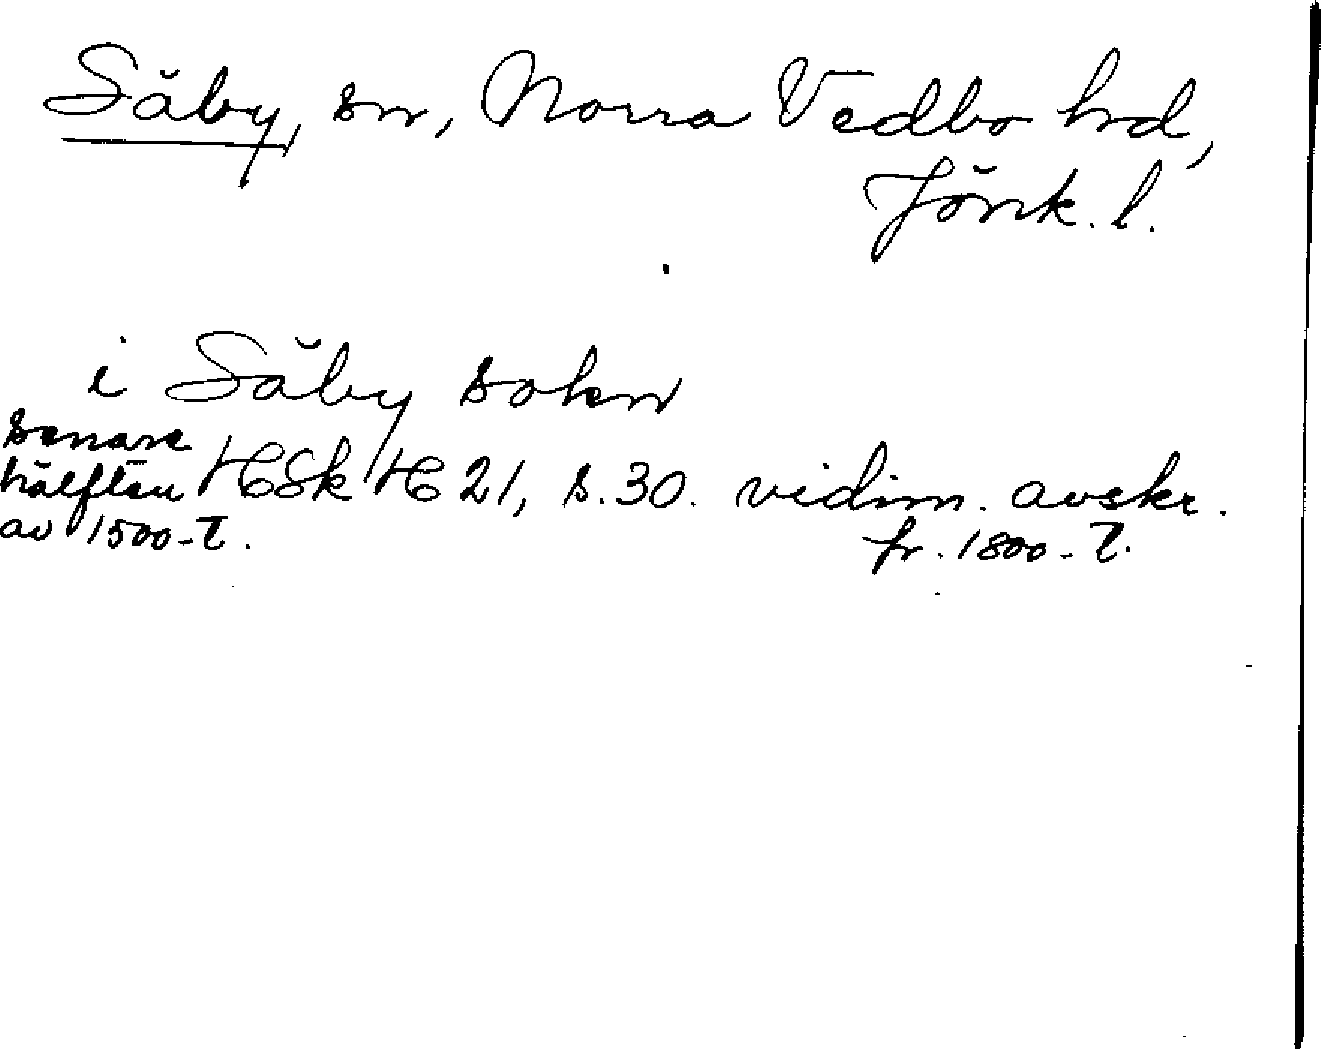 Säby, sn, Norra Vedbo hd,
Jönk. l.
i Säby sokn
senare
hälften HSk H 21, s. 30. vidim. avskr.
av 1500-t. fr. 1800-t.